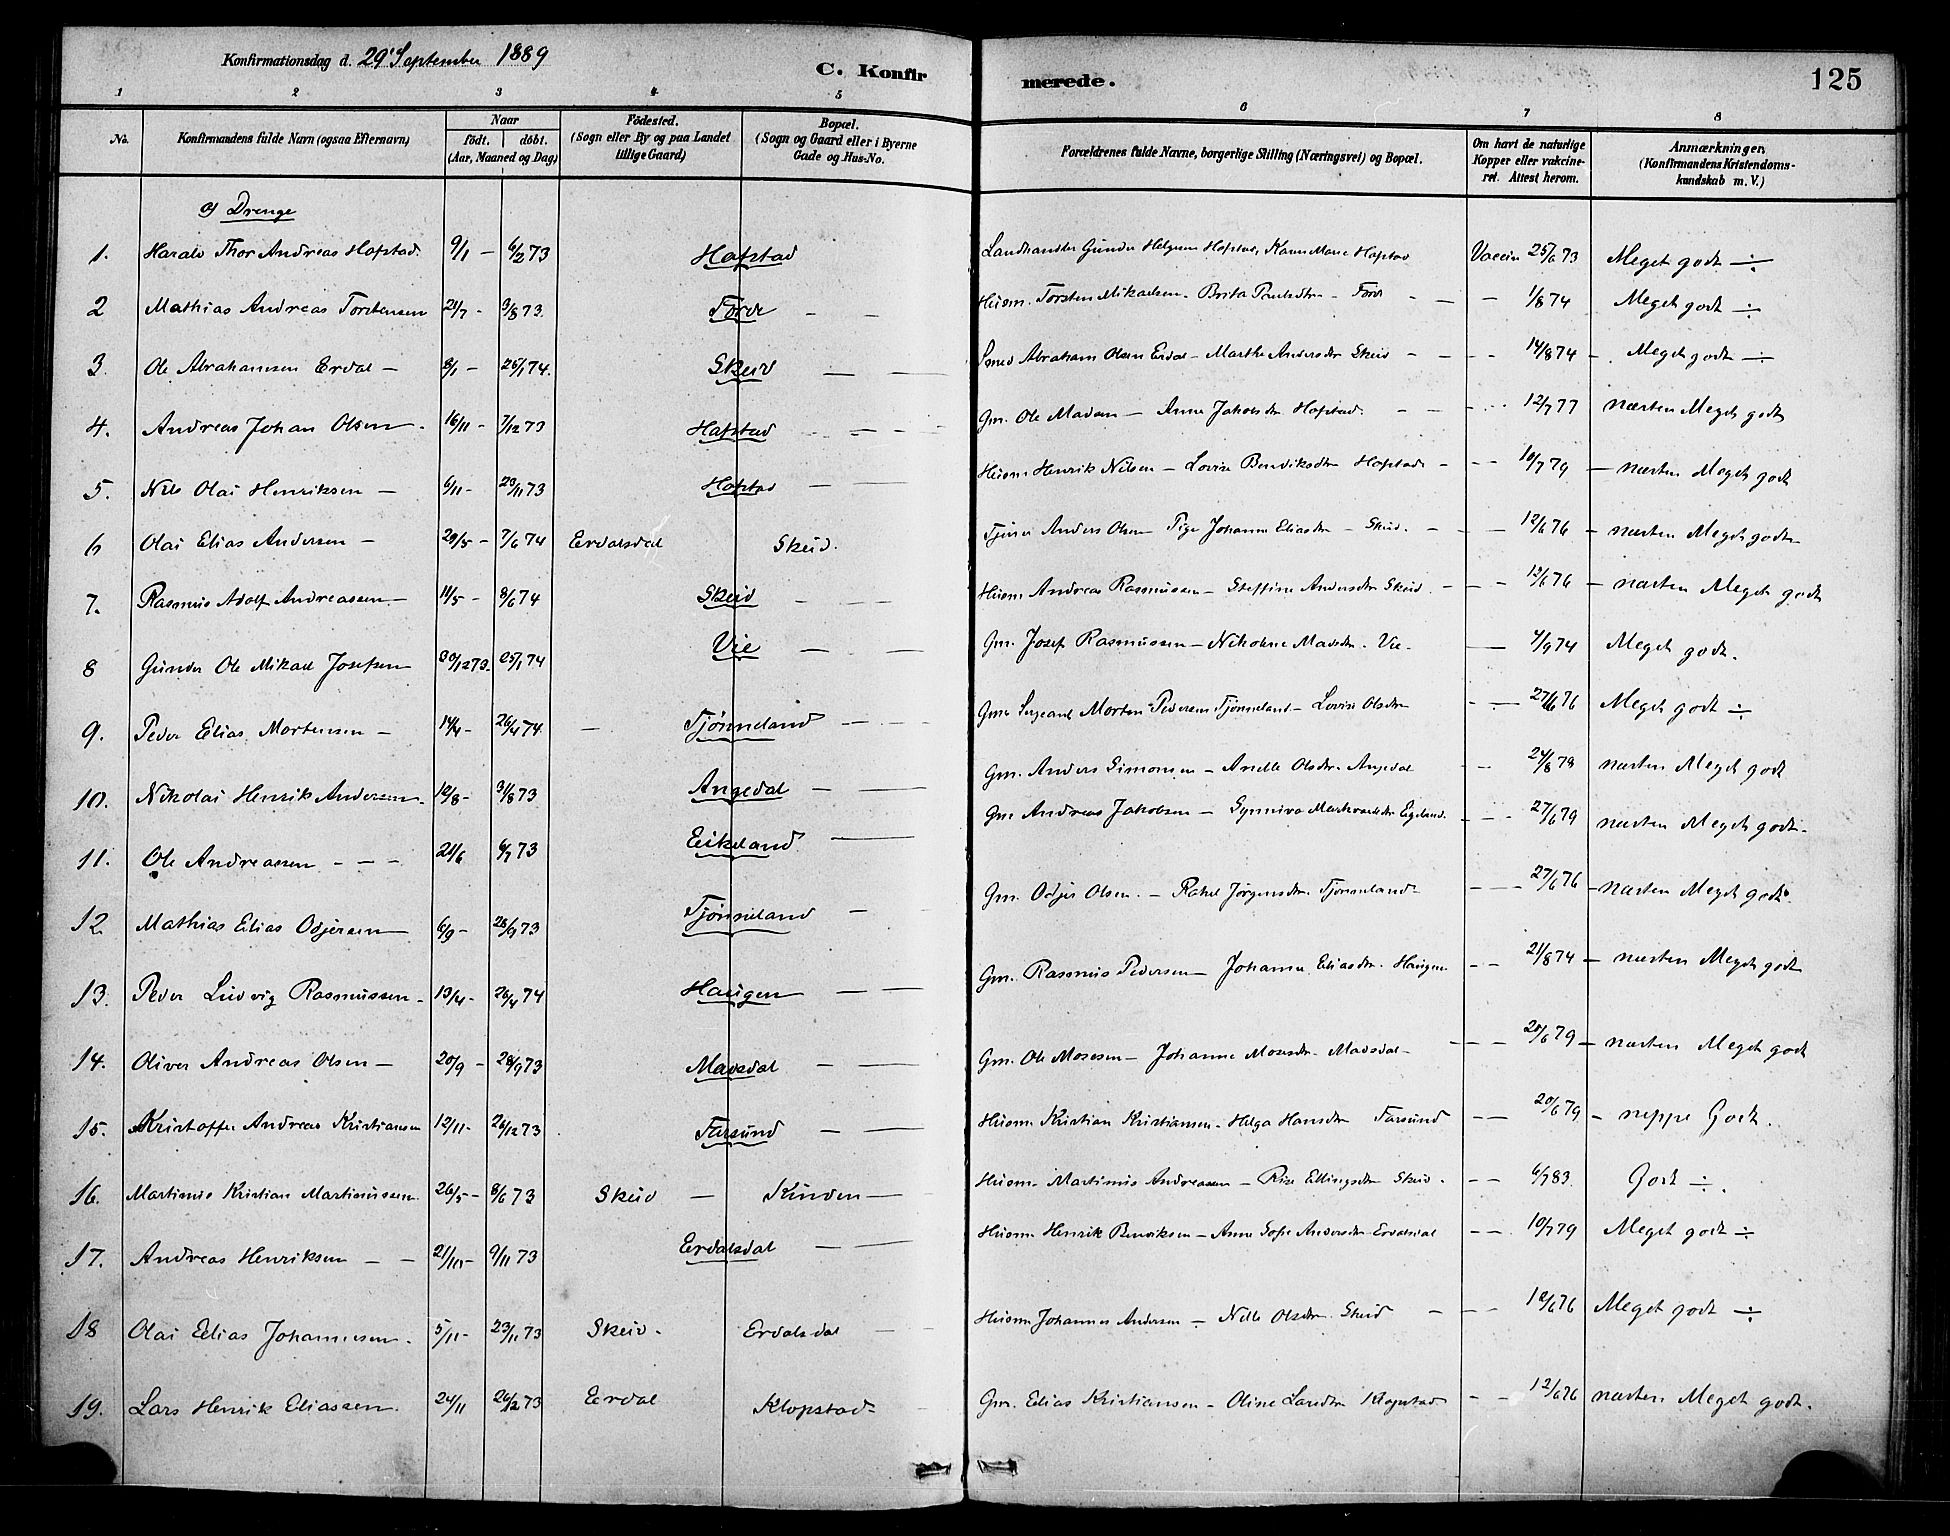 Konfirmationsdag d. 29' September 1889
C. Konfirmerede.
125
1 2 3 4 5 6 7 8
No. Konfirmandens fulde Navn (ogsaa Efternavn) Naar födt. döbt. (Aar, Maaned og Dag) Födested. (Sogn eller By og paa Landet tillige Gaard) Bopæl. (Sogn og Gaard eller i Byerne Gade og Hus-No. Forældrenes fulde Navne, borgerlige Stilling (Næringsvei) og Bopæl. Om havt de naturlige Kopper eller vakcineret. Attest herom. Anmærkninger. (Konfirmandens Kristendomskundskab m. V.)
a) Drenge
1. Harald Thor Andreas Hafstad. 9/1 — 6/2 73 Hafstad Landhandler Gunder Helgesen Hafstad, Karen Marie Hafstad Vaccin 25/6 73 Meget godt ÷
2 Mathias Andreas Torstensen 21/7 - 3/8 73. Förde — — Husm. Torsten Mikaelsen - Brita Paulsdtr - Förde - — - 1/8 74 Meget godt ÷
3. Ole Abrahamsen Erdal — 8/1 - 25/1 74. Skeid — — Smed Abraham Olsen Erdal - Marthe Andersdtr Skeid - - - - 14/8 74 - Meget godt ÷
4. Andreas Johan Olsen - 16/11 - 7/12 73 Hafstad - - - Gm. Ole Madsen - Anne Jakobsdtr Hafstad. - - - 12/7 77 næsten Meget godt
5. Nils Olai Henriksen — 6/11 - 23/11 73 Hafstad — — Husm Henrik Nilsen - Lovise Bendiksdtr Hafstad - - - 10/7 79 — næsten Meget godt
6 Olai Elias Andersen — 29/5 - 7/6 74 Erdalsdal Skeid. Tjener Anders Olsen - Pige Johanne Eliasdtr - Skeid. - - 12/6 76 - næsten Meget godt
7. Rasmus Adolf Andreassen - 11/5 - 8/6 74 Skeid - — Husm Andreas Rasmussen - Steffine Andersdtr Skeid. - - - 12/6 76 - næsten Meget godt
8 Gunder Ole Mikael Josefsen 30/12 73. 25/1 74 Vie — — Gm. Josef Rasmussen - Nikoline Madsdtr. Vie. — 4/9 74 Meget godt.
9. Peder Elias Mortensen — 14/4 - 26/4 74 — Tjönneland — - - Gm Sergeant Morten Pedersen Tjönneland - Lovise Olsdtr - — 27/6 76 Meget godt ÷
10. Nikolai Henrik Andersen. 12/8 - 31/8 73 Angedal — — Gm. Anders Simonsen - Anelle Olsdtr. Angedal - - 24/8 79 næsten Meget godt
11. Ole Andreassen - - - 21/6 6/7 73 Eikeland — Gm Andreas Jakobsen - Synniva Eigeland. - - - 27/6 79 næsten Meget godt.
12 Mathias Elias Odgersen — 6/9 - 28/9 73 Tjönneland — - Gm. Odger Olsen. - Rakel Jörgensdtr. Tjönneland - - — - 27/6 76 - næsten Meget godt.
13. Peder Ludvig Rasmussen - 13/4 - 26/4 74 Haugen — — Gm. Rasmus Pedersen - Johanne Eliasdtr. Haugen - - 21/8 74 - næsten Meget godt
14. Oliver Andreas Olsen — 20/9 - 28/9 73 Madsdal — — Gm. Ole Mosesen - Johanne Mosesdtr. Madsdal - — - - 20/6 79 - næsten Meget godt
15. Kristoffer Andreas Kristiansen 12/11 - 26/12 73 Farsund — — Husm Kristian Kristiansen - Helga Hansdtr Farsund - - 20/6 79 - neppe Godt.
16. Martinus Kristian Martinussen. 26/5 - 8/6 73 Skeid — Kinden — Husm. Martinus Andreassen - Rise Ellingsdtr Skeid. - - 6/7 83. Godt ÷.
17. Andreas Henriksen - - 21/10 - 9/11 73 Erdalsdal — — Husm Henrik Bendiksen - Anne Sofie Andersdtr Erdalsdal - - 10/7 79 Meget godt ÷
18 Olai Elias Johannesen. 5/11 - 23/11 73 Skeid. Erdalsdal - - Husm Johannes Andersen - Nille Olsdtr. Skeid - - - 12/6 76 Meget godt ÷
19. Lars Henrik Eliassen. 24/11 26/12 73 Erdal Klopstad - - Gm. Elias Kristiansen - Oline Larsdtr Klopstad - - 12/6 76 næsten Meget godt.